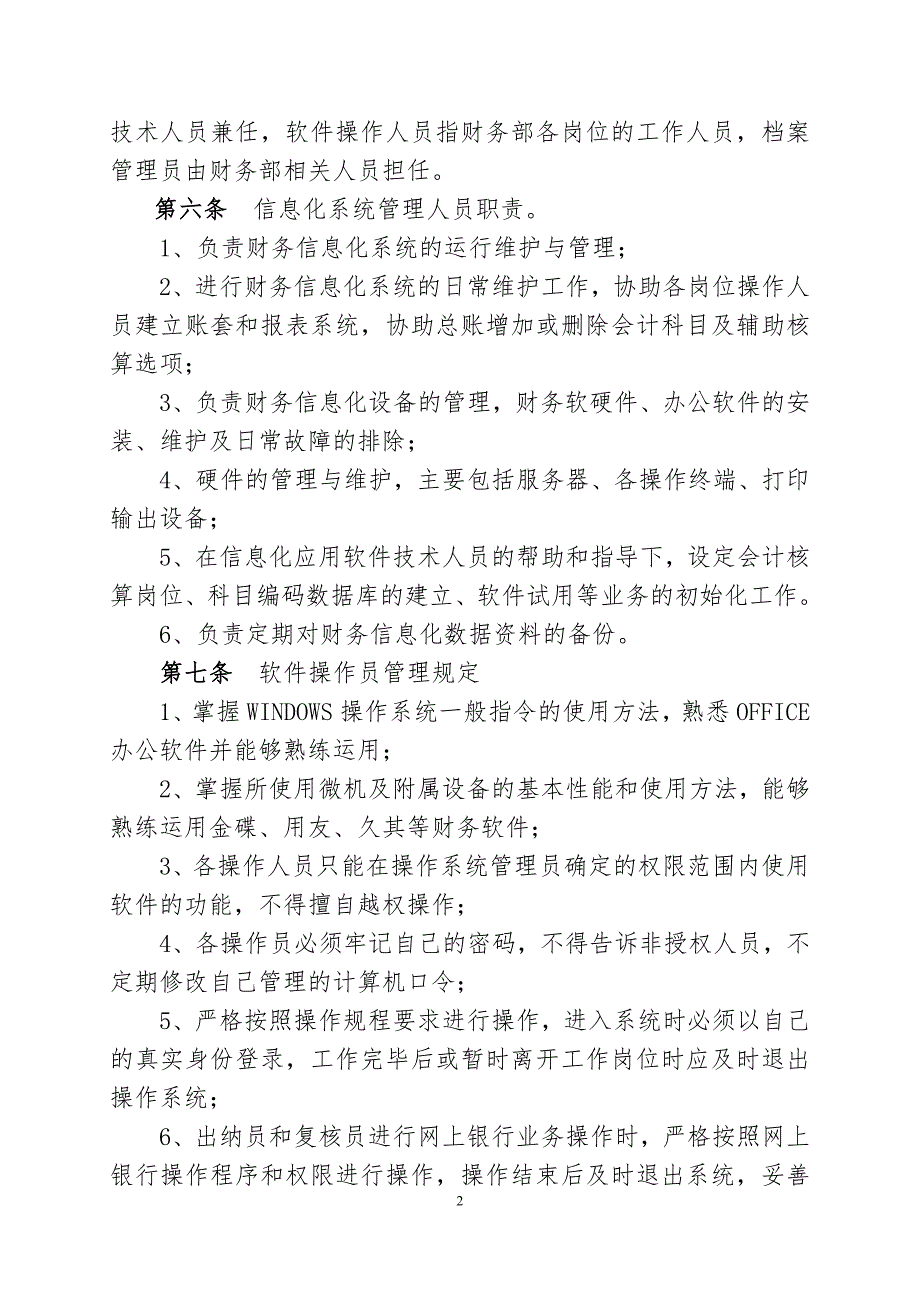 技术人员兼任，软件操作人员指财务部各岗位的工作人员，档案
管理员由财务部相关人员担任。
第六条　信息化系统管理人员职责。
1、负责财务信息化系统的运行维护与管理；
2、进行财务信息化系统的日常维护工作，协助各岗位操作人
员建立账套和报表系统，协助总账增加或删除会计科目及辅助核
算选项；
3、负责财务信息化设备的管理，财务软硬件、办公软件的安
装、维护及日常故障的排除；
4、硬件的管理与维护，主要包括服务器、各操作终端、打印
输出设备；
5、在信息化应用软件技术人员的帮助和指导下，设定会计核
算岗位、科目编码数据库的建立、软件试用等业务的初始化工作。
6、负责定期对财务信息化数据资料的备份。
第七条　软件操作员管理规定
1、掌握WINDOWS操作系统一般指令的使用方法，熟悉OFFICE
办公软件并能够熟练运用；
2、掌握所使用微机及附属设备的基本性能和使用方法，能够
熟练运用金碟、用友、久其等财务软件；
3、各操作人员只能在操作系统管理员确定的权限范围内使用
软件的功能，不得擅自越权操作；
4、各操作员必须牢记自己的密码，不得告诉非授权人员，不
定期修改自己管理的计算机口令；
5、严格按照操作规程要求进行操作，进入系统时必须以自己
的真实身份登录，工作完毕后或暂时离开工作岗位时应及时退出
操作系统；
6、出纳员和复核员进行网上银行业务操作时，严格按照网上
银行操作程序和权限进行操作，操作结束后及时退出系统，妥善
2